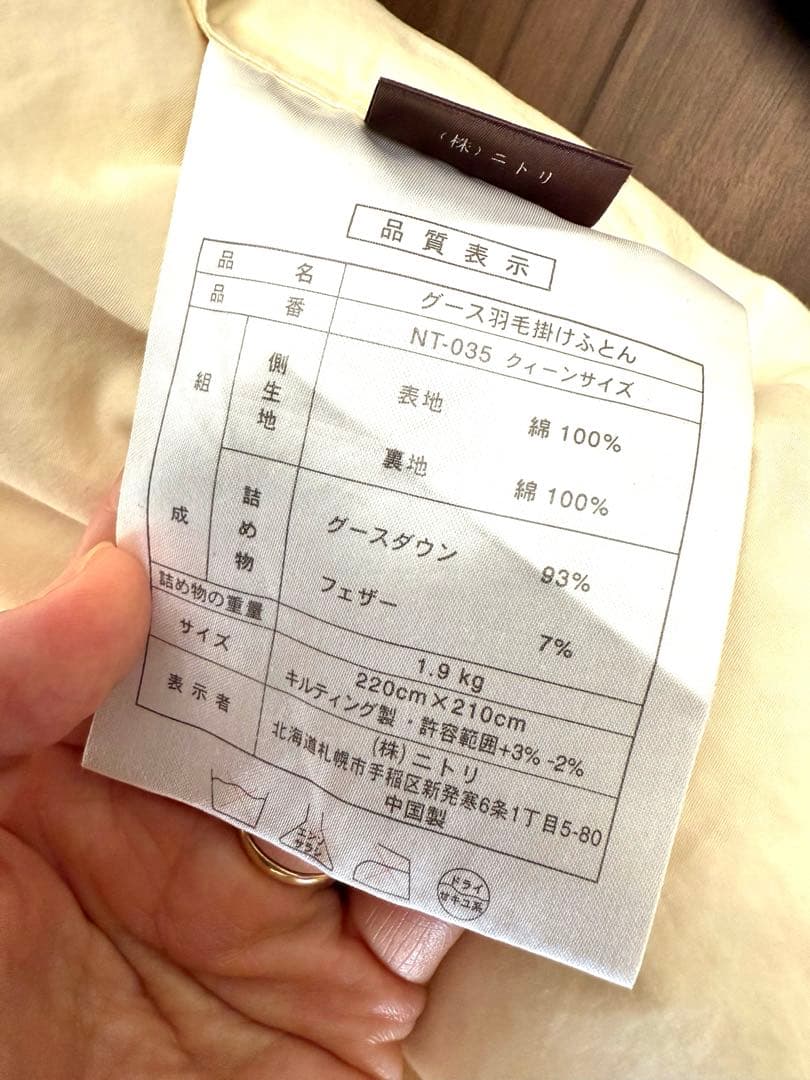 (株)ニトリ
品質表示
品名 グース羽毛掛けふとん
品番 NT-035 クィーンサイズ
組成 側生地 表地 綿 100%
裏地 綿 100%
詰め物 グースダウン 93%
フェザー 7%
詰め物の重量 1.9 kg
サイズ 220cm×210cm
キルティング製・許容範囲+3% -2%
表示者 (株)ニトリ
北海道札幌市手稲区新発寒6条1丁目5-80
中国製
エンソサラシ
ドライ
セキユ系